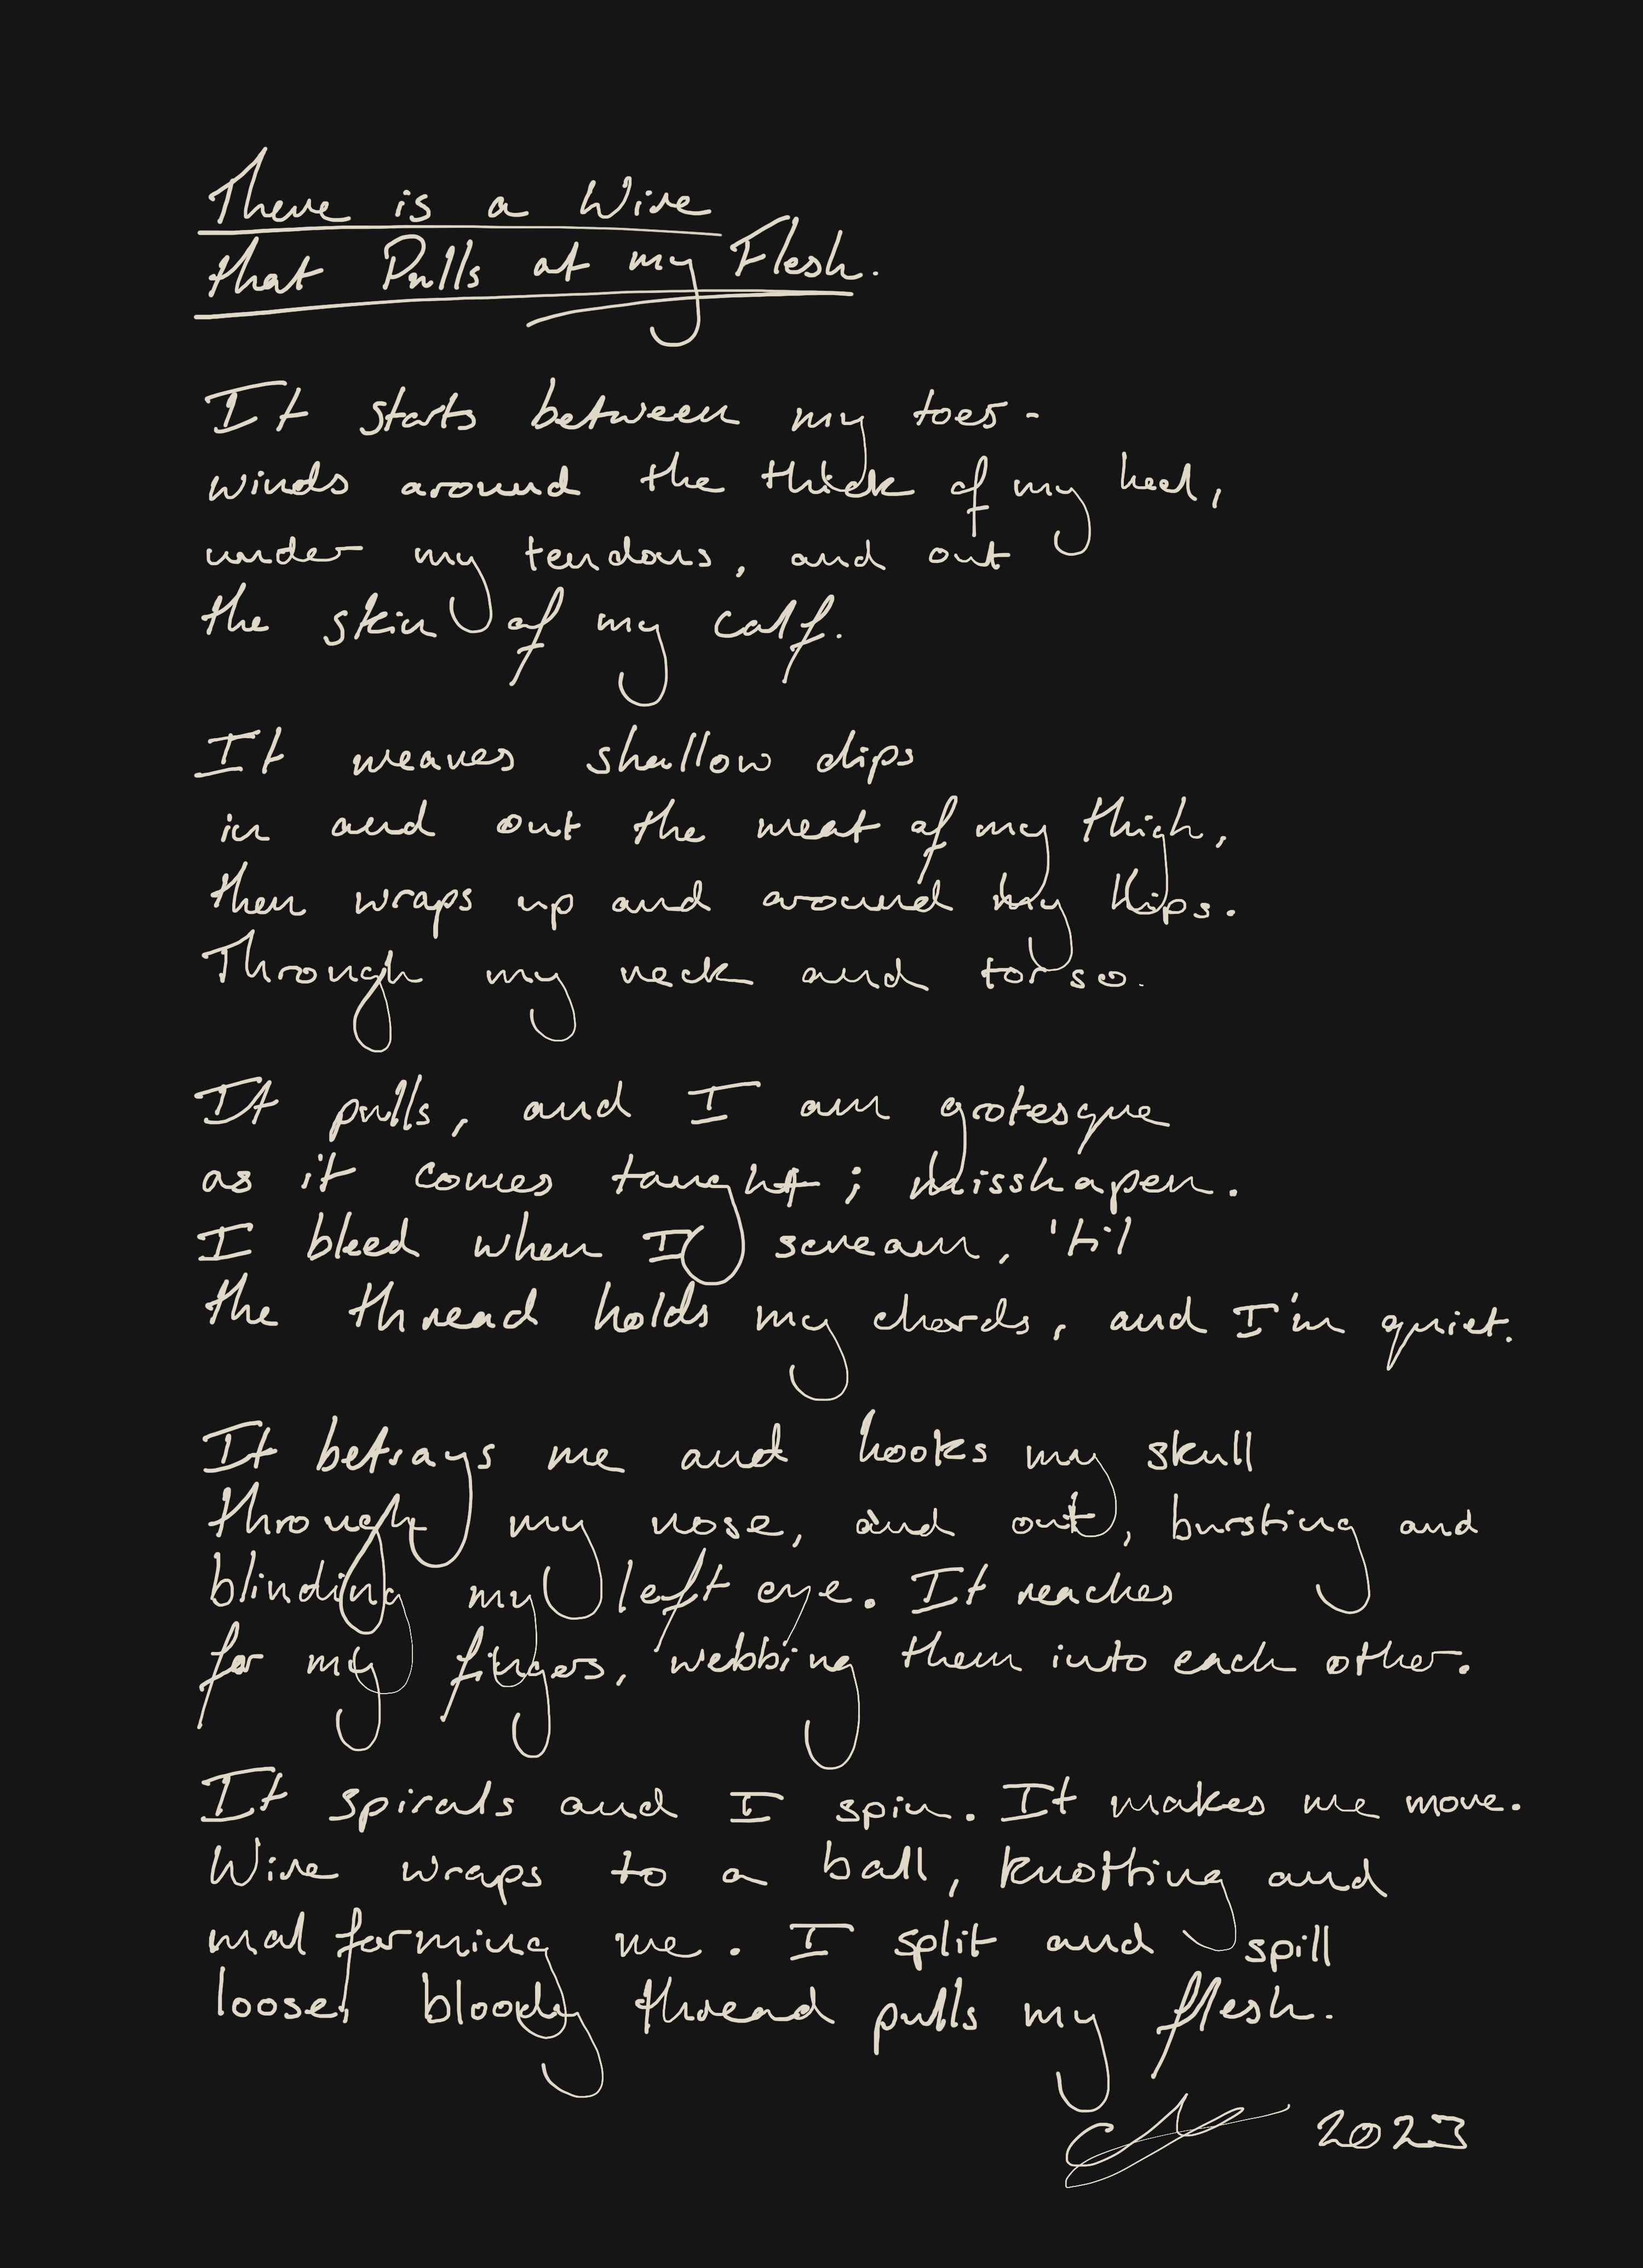 There is a Wire
that Pulls at my Flesh.
It starts between my toes -
winds around the thick of my heel,
under my tendons, and out
the skin of my calf.
It weaves shallow dips
in and out the meat of my thigh,
then wraps up and around my hips.
Through my neck and torso.
It pulls, and I am grotesque
as it comes taught; misshapen.
I bleed when I scream, 'til
the thread holds my chords, and I'm quiet.
It betrays me and hooks my skull
through my nose, and out, bursting and
blinding my left eye. It reaches
for my fingers, webbing them into each other.
It spirals and I spin. It makes me move.
Wire wraps to a ball, knotting and
malforming me. I split and spill
loose, bloody thread pulls my flesh.
2023